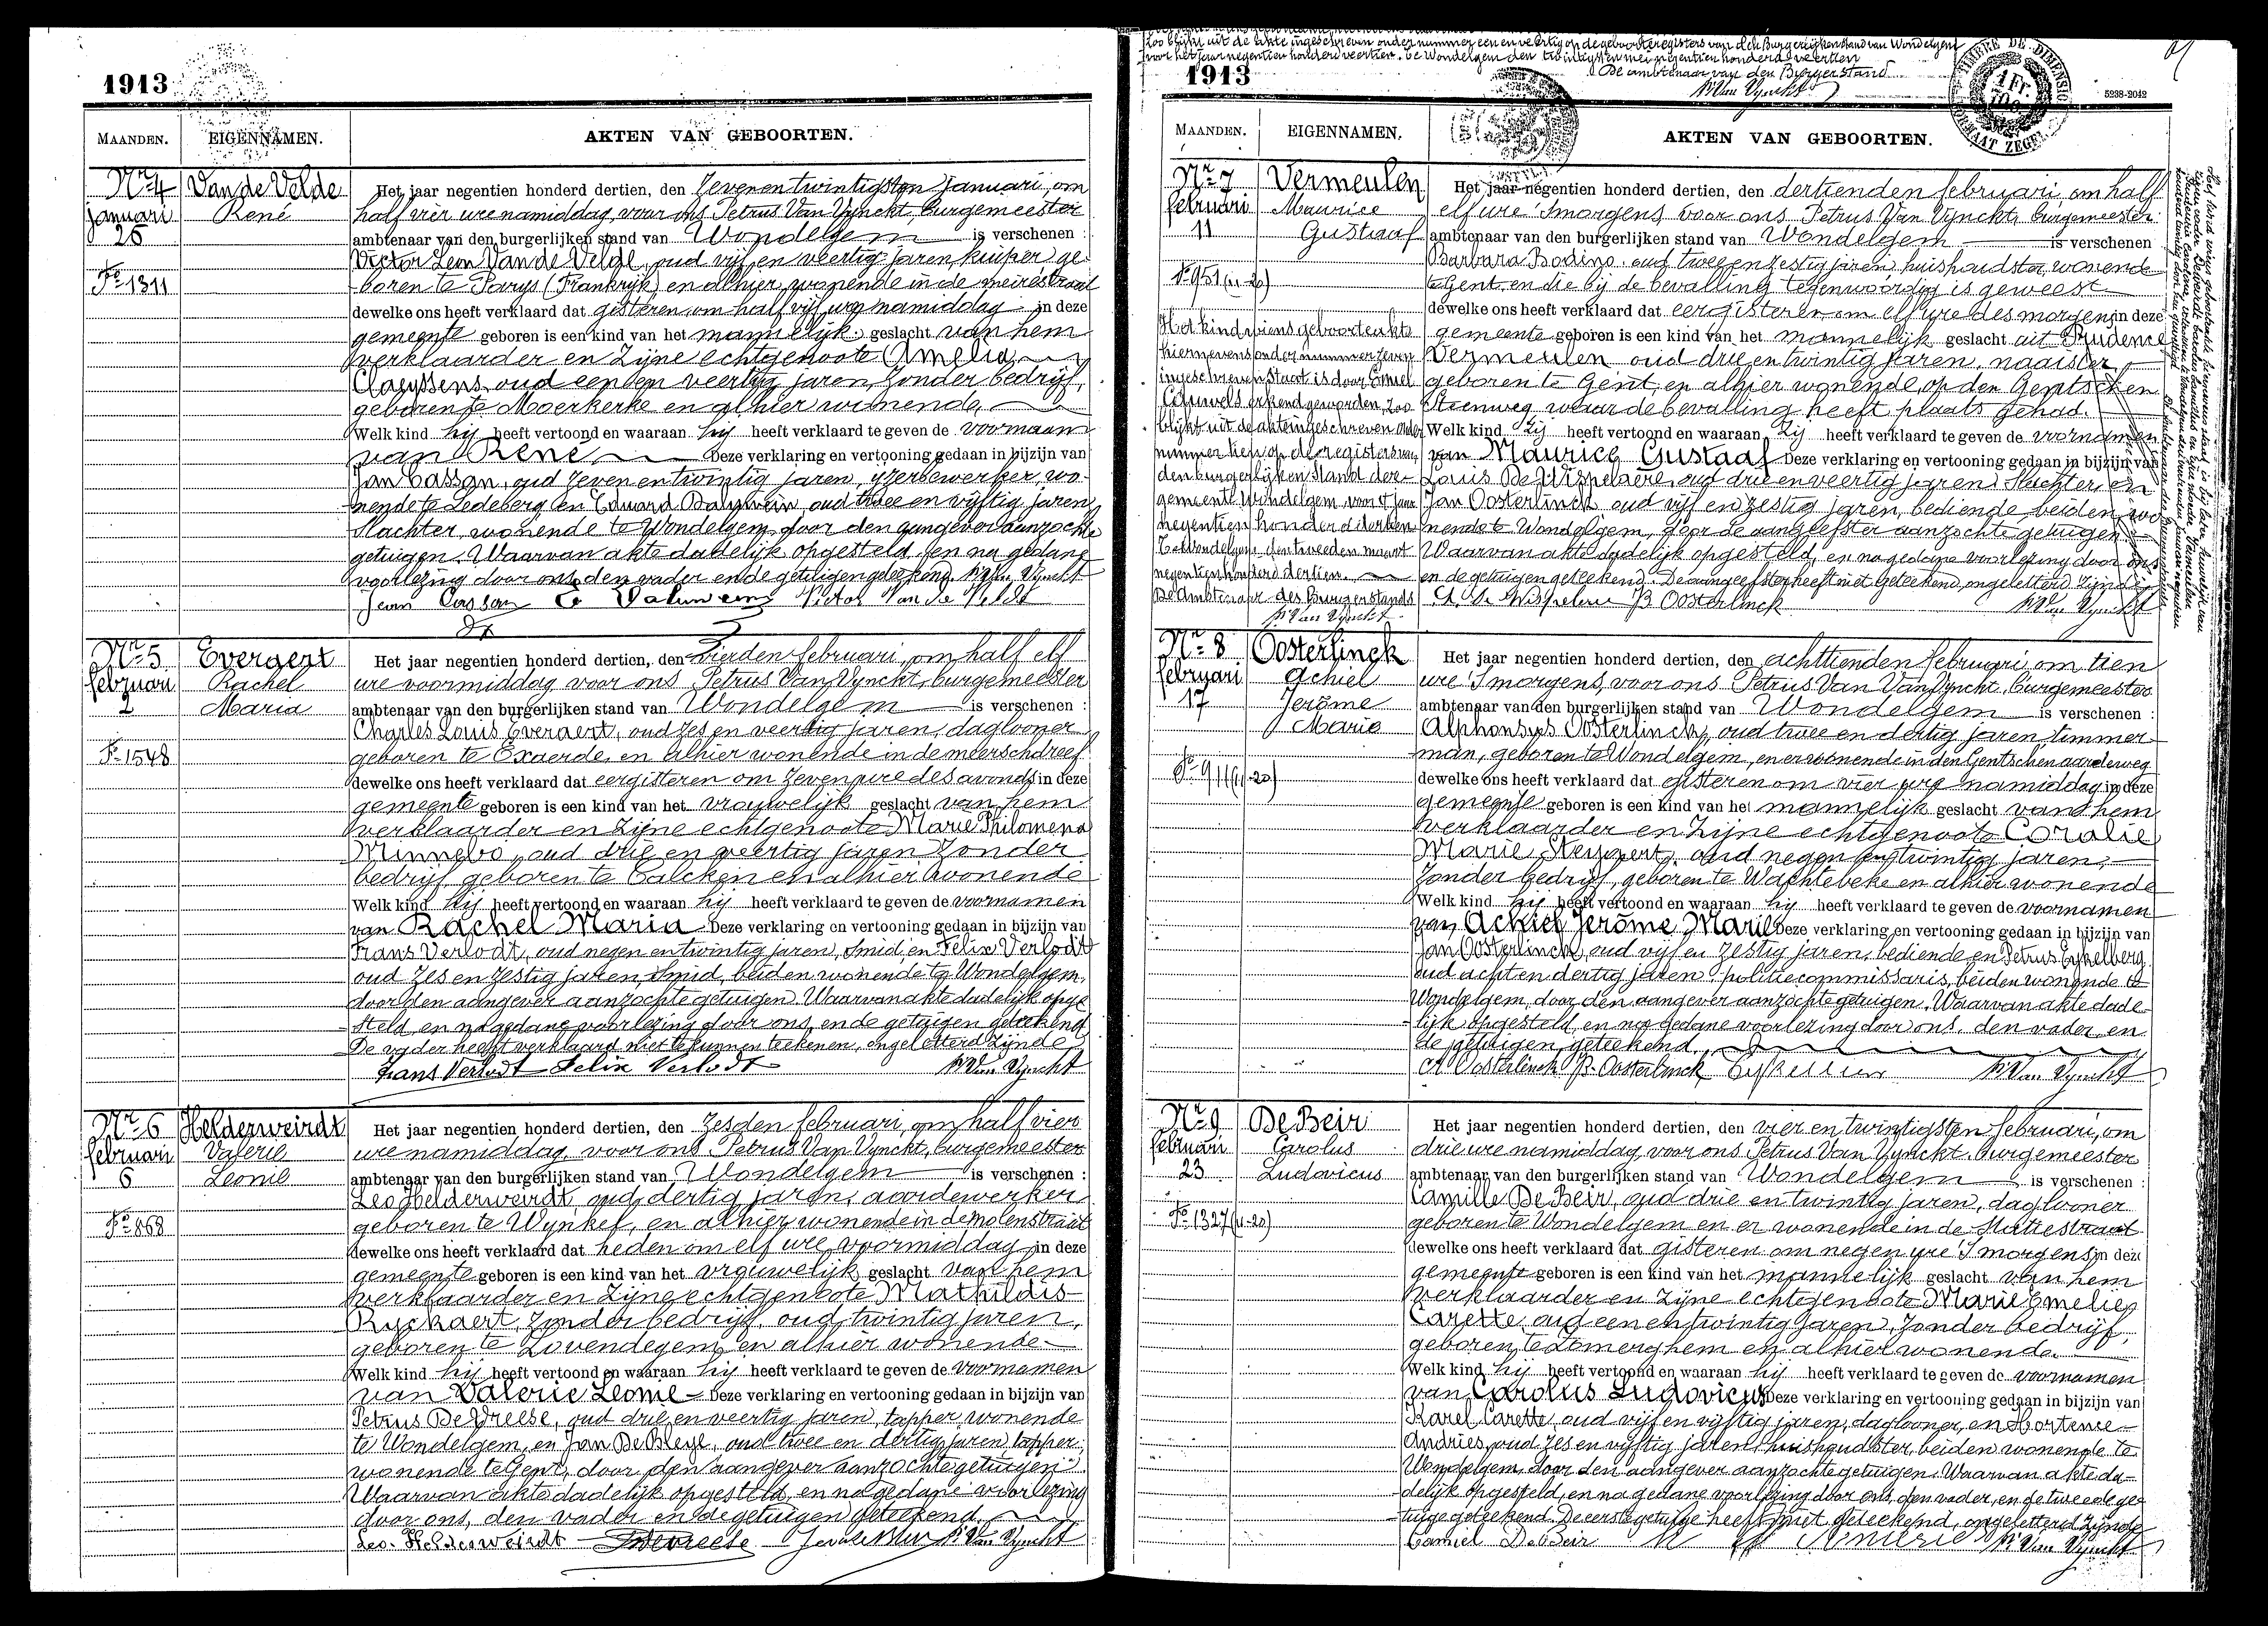 1913
MAANDEN. EIGENNAMEN. AKTEN VAN GEBOORTEN.
Nr 4 Van de Velde Het jaar negentien honderd dertien, den zevenentwintigsten Januari, om
Januari René half vier ure namiddag, voor ons Petrus Van Vynckt, burgemeester
26 ambtenaar van den burgerlijken stand van Wondelgem is verschenen :
Victor Leon Van de Velde, oud vijf en veertig jaren, kuiper ge-
No 1311 boren te Parys (Frankrijk) en alhier wonende in de meirestraat
dewelke ons heeft verklaard dat gisteren om half vijf ure namiddag in deze
gemeente geboren is een kind van het mannelijk geslacht van hem
verklaarder en zijne echtgenoote Amelia
Claeyssens, oud een en veertig jaren, zonder bedrijf,
geboren te Moerkerke en alhier wonende,
Welk kind hij heeft vertoond en waaraan hij heeft verklaard te geven de voornaam
van René Deze verklaring en vertooning gedaan in bijzijn van
Jan Casson, oud zeven en twintig jaren, ijzerbewerker, wo-
nende te Ledeberg en Eduard Dalywein, oud twee en vijftig jaren
slachter wonende te Wondelgem, door den aangever aanzochte
getuigen. Waarvan akte dadelijk opgesteld, en na gedane
voorlezing door ons, den vader en de getuigen geteekend. P. Van Vynckt
Jean Casson Victor Van de Velde
Nr 5 Evergert Het jaar negentien honderd dertien, den vierden februari, om half elf
februari Rachel ure voormiddag voor ons Petrus Van Vynckt, burgemeester
2 Maria ambtenaar van den burgerlijken stand van Wondelgem is verschenen :
Charles Louis Everaert, oud zes en veertig jaren, daglooner
No 1548 geboren te Exaerde, en alhier wonende in de meerschdreef
dewelke ons heeft verklaard dat eergisteren om zeven ure des avonds in deze
gemeente geboren is een kind van het vrouwelijk geslacht van hem
verklaarder en zijne echtgenoote Marie Philomena
Minnebo, oud drie en veertig jaren zonder
bedrijf geboren te Calcken en alhier wonende
Welk kind hij heeft vertoond en waaraan hij heeft verklaard te geven de voornamen
van Rachel Maria Deze verklaring en vertooning gedaan in bijzijn van
Frans Verlodt, oud negen en twintig jaren, smid, en Felix Verlodt
oud zes en zestig jaren, smid, beiden wonende te Wondelgem,
door den aangever aanzochte getuigen. Waarvan akte dadelijk opge-
steld en na gedane voorlezing door ons, en de getuigen geteekend
De vader heeft verklaard niet te kunnen teekenen, ongeletterd zijnde
Frans Verlodt Felix Verlodt P. Van Vynckt
Nr 6 Helderweirdt Het jaar negentien honderd dertien, den zesden februari, om half vier
februari Valerie ure namiddag, voor ons Petrus Van Vynckt, burgemeester
6 Leonie ambtenaar van den burgerlijken stand van Wondelgem is verschenen :
Leo Helderweirdt, oud dertig jaren, aardewerker
No 868 geboren te Wynkel, en alhier wonende in de molenstraat
dewelke ons heeft verklaard dat heden om elf ure voormiddag in deze
gemeente geboren is een kind van het vrouwelijk geslacht van hem
verklaarder en zijne echtgenoote Mathildis
Ryckaert, zonder bedrijf, oud twintig jaren,
geboren te Lovendegem en alhier wonende
Welk kind hij heeft vertoond en waaraan hij heeft verklaard te geven de voornamen
van Valerie Leonie Deze verklaring en vertooning gedaan in bijzijn van
Petrus De Vreese, oud drie en veertig jaren, tapper, wonende
te Wondelgem, en Jan De Bleye, oud twee en dertig jaren tapper,
wonende te Gent, door den aangever aanzochte getuigen.
Waarvan akte dadelijk opgesteld, en na gedane voorlezing
door ons, den vader en de getuigen geteekend.
Leo Helderweirdt Devreese P. Van Vynckt
zoo blijkt uit de akte ingeschreven onder nummer een en veertig op de geboorteregisters van den Burgerlijken stand van Wondelgem
voor het jaar negentien honderd veertien. Te Wondelgem den twintigsten mei negentien honderd veertien
De ambtenaar van den Burgerstand
P. Van Vynckt
1913
TIMBRE DE DIMENSION
1 Fr.
FORMAAT ZEGEL
5238-2042
MAANDEN. EIGENNAMEN. AKTEN VAN GEBOORTEN.
Nr 7 Vermeulen Het jaar negentien honderd dertien, den dertienden februari, om half
februari Maurice elf ure 's morgens voor ons Petrus Van Vynckt, burgemeester
11 Gustaaf ambtenaar van den burgerlijken stand van Wondelgem is verschenen
Barbara Bodino oud twee en zestig jaren huishoudster, wonende
No 951 (11-20) te Gent, en die bij de bevalling tegenwoordig is geweest
dewelke ons heeft verklaard dat eergisteren om elf ure des morgens in deze
gemeente geboren is een kind van het mannelijk geslacht uit Prudence
Vermeulen oud drie en twintig jaren, naaister
geboren te Gent, en alhier wonende, op den Gentschen
Steenweg waar de bevalling heeft plaats gehad.
Welk kind zij heeft vertoond en waaraan zij heeft verklaard te geven de voornamen
van Maurice Gustaaf Deze verklaring en vertooning gedaan in bijzijn van
Louis De Wispelaere, oud drie en veertig jaren, slachter, en
Jan Oosterlinck, oud vijf en zestig jaren, bediende, beiden wo-
nende te Wondelgem, door de aangeefster aanzochte getuigen
Waarvan akte dadelijk opgesteld, en na gedane voorlezing door ons
en de getuigen geteekend. De aangeefster heeft niet geteekend, ongeletterd zijnde
B Oosterlinck P. Van Vynckt
Het kind wiens geboorteakte
hiernevens onder nummer zeven
ingeschreven staat is door Emiel
erkend geworden, zoo
blijkt uit de akte ingeschreven onder
nummer tien op de registers van
den burgerlijken stand der
gemeente Wondelgem, voor 't jaar
negentien honderd dertien
Te Wondelgem, den tweeden maart
negentienhonderd dertien.
De Ambtenaar des Burgerstands
P. Van Vynckt
Nr 8 Oosterlinck Het jaar negentien honderd dertien, den achttienden februari, om tien
februari Achiel ure 's morgens, voor ons Petrus Van Van Vynckt, burgemeester
17 Jerôme ambtenaar van den burgerlijken stand van Wondelgem is verschenen :
Marie Alphonsus Oosterlinck, oud twee en dertig jaren, timmer-
man, geboren te Wondelgem, en er wonende in den Gentschen aardeweg
No 911 (11-20) dewelke ons heeft verklaard dat gisteren om vier ure namiddag in deze
gemeente geboren is een kind van het mannelijk geslacht van hem
verklaarder en zijne echtgenoote Coralie
Marie Neyaert, oud negen en twintig jaren,
zonder bedrijf, geboren te Wachtebeke en alhier wonende
Welk kind hij heeft vertoond en waaraan hij heeft verklaard te geven de voornamen
van Achiel Jerôme Marie Deze verklaring en vertooning gedaan in bijzijn van
Jan Oosterlinck, oud vijf en zestig jaren, bediende en Petrus Eykelberg
oud acht en dertig jaren politiecommissaris, beiden wonende te
Wondelgem, door den aangever aanzochte getuigen. Waarvan akte dade-
lijk opgesteld, en na gedane voorlezing door ons, den vader en
de getuigen geteekend.
A Oosterlinck B. Oosterlinck P. Van Vynckt
Nr 9 De Beir Het jaar negentien honderd dertien, den vier en twintigsten februari, om
februari Carolus drie ure namiddag voor ons Petrus Van Vynckt, burgemeester
23 Ludovicus ambtenaar van den burgerlijken stand van Wondelgem is verschenen :
Camille De Beir, oud drie en twintig jaren, daglooner
No 1327 (11-20) geboren te Wondelgem en er wonende in de Statiestraat
dewelke ons heeft verklaard dat gisteren om negen ure 's morgens in deze
gemeente geboren is een kind van het mannelijk geslacht van hem
verklaarder en zijne echtgenoote Marie Emelie
Carette, oud een en twintig jaren, zonder bedrijf,
geboren te Zomerghem en alhier wonende.
Welk kind hij heeft vertoond en waaraan hij heeft verklaard te geven de voornamen
van Carolus Ludovicus Deze verklaring en vertooning gedaan in bijzijn van
Karel Carette, oud vijf en vijftig jaren, daglooner, en Hortence
Andries, oud zes en vijftig jaren, huishoudster, beiden wonende te
Wondelgem, door den aangever aanzochte getuigen. Waarvan akte da-
delijk opgesteld, en na gedane voorlezing door ons, den vader, en de tweede ge-
tuige geteekend. De eerste getuige heeft niet geteekend, ongeletterd zijnde
Camiel De Beir P. Van Vynckt